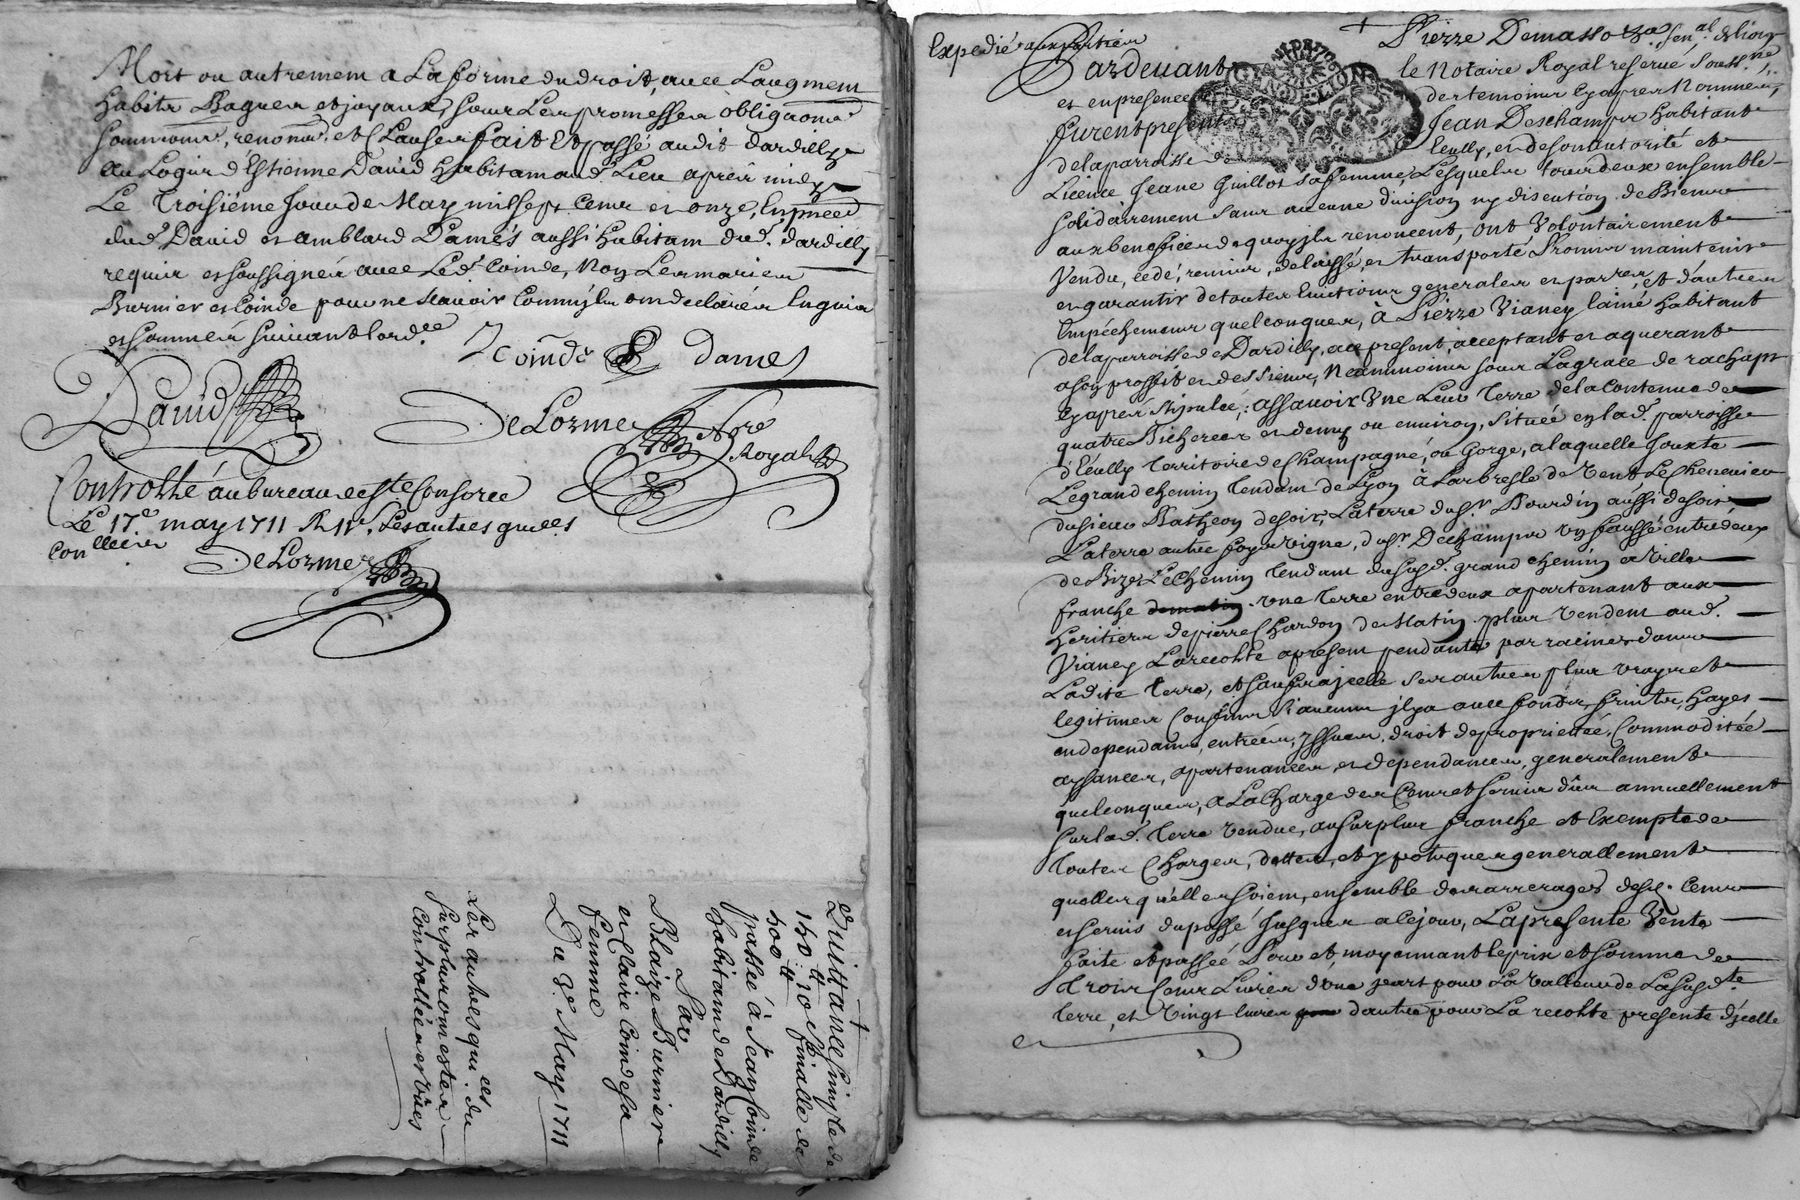 Mort ou autrement a La forme du droit, avec Laugment
habits Bagues et joyaux, sous Les promesses obligaõns
soumissions, renonõns et Clauses fait Et passé audit dardilly
au Logis d'Estienne David habitant aud. Lieu aprês midy
Le Troisiéme Jour de May mil sept cents et onze, En pñce
dud. David et amblard Damés aussi habitant dud. dardilly
requis et soussignés avec Led. Coinde, Non Les mariés
Burnier et Coinde pour ne sçavoir Comm'ils ont declarés Enquis
et sommés suivant Lord.ce
J Coinde Dames
David
DeLorme No.re
Royal
Controllé au bureau de S.te Consorce
Le 17.e may 1711 R 11s. Les autres
DeLorme
+
Quittance simple de
140 ₶ 10 s finalle de
400 ₶
passée à Jean Coinde
habitant de Dardilly
Par
Blaize Burnier
et Claire Coinde sa
femme
Du 3.e May 1711
Les autres qui.ces du
surplus ont estés
Controllées et vûes
Expedié aux parties
+ Pierre Demasso
Pardevant le Notaire Royal reservé souss.né
et en presence des temoins Cy aprés Nommés,
furent presents Jean Deschamps habitant
de la parroisse de leully, et de son autorité et
Licence Jeane Guillot sa femme, Lesquels tous deux ensemble
solidairement sans aucune division ny discution de Biens
aux benefices de quoy ils renoncent, ont Volontairement
Vendu, cedé, remis, delaissé, et transporté Promis maintenir
et garantir de toutes Evictions generales et par.res, et d'autres
Empéchements quelconques, à Pierre Vianey L'ainé habitant
de la parroisse de Dardilly, ace present, acceptant et aquerant
a son proffit et des siens, Neanmoins sous La grace de rachapt
Cy aprés stipulée; assavoir Une Leur Terre de la Contenue de
quatre Bicherées et demy ou environ, située en lad. parroisse
d'Eculy Territoire de Champagne, ou Gorge, a laquelle Jouxte
Le grand chemin Tendant de Lyon à Larbresle de Vent Le
du sieur Batheon de soir, La terre du s.r Bourdin aussi de soir
La terre autre foys vigne, du s.r Dechamps un faussé entredeux
de Bize, Le Chemin Tendant du susd. grand chemin a Ville
franche Une Terre entredeux apartenant aux
heritiers de pierre Chardon de Matin. plus Vendent aud.
Vianey La recolte apresent pendante par racines dans
Ladite Terre, et sauf d'ycelle ses autres plus vrays et
legitimes Confins s'aucuns il y a avec fonds, fruits, Hayes
en dependants, entrées, yssues, droit de proprieté, Commoditée
aysances, apartenances, et dependances, generalement
quelconques, a La Charge des Cens et servis dûs annuellement
sur lad. Terre vendue, au surplus franche et Exempte de
Toutes Charges, dettes, et ypoteques generallement
quelles qu'elles soient, ensemble des arrerages desd. Cens
et servis du passé Jusques a ce jour, La presente Vente
faite et passée Pour et moyennant le prix et somme de
Trois Cents Livres d'une part pour La Valleur de La susd.te
Terre, et Vingt livres d'autre pour La recolte presente d'icelle